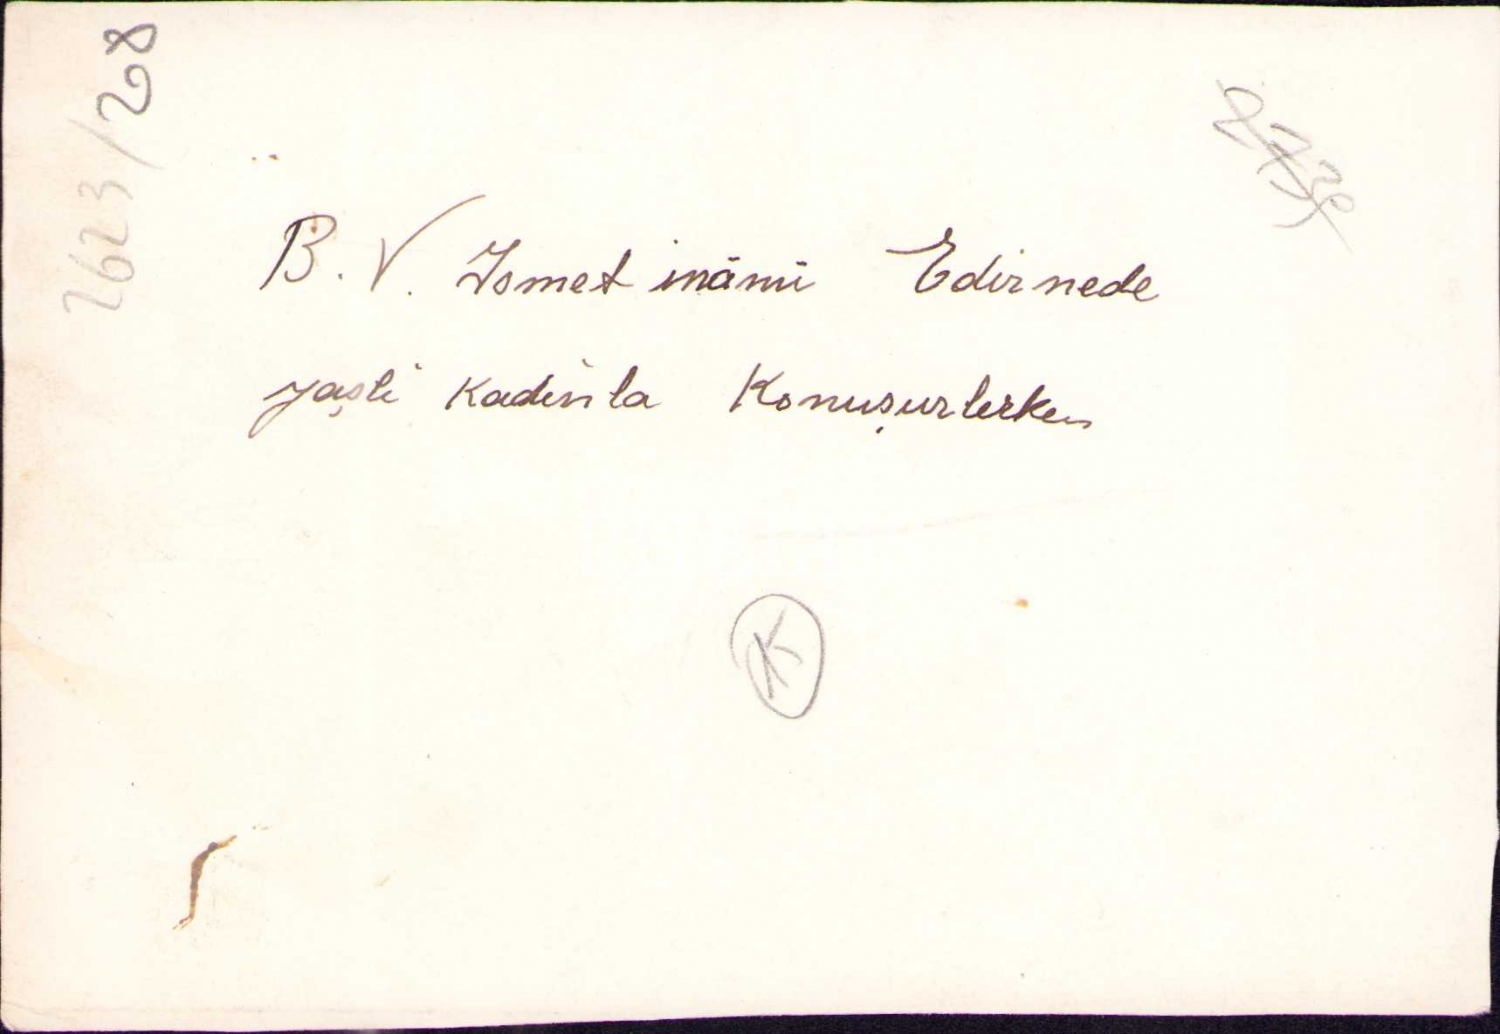 2623/208
B. V. Ismet inönü Edirnede
yaşli kadinla Konuşurlerken
K